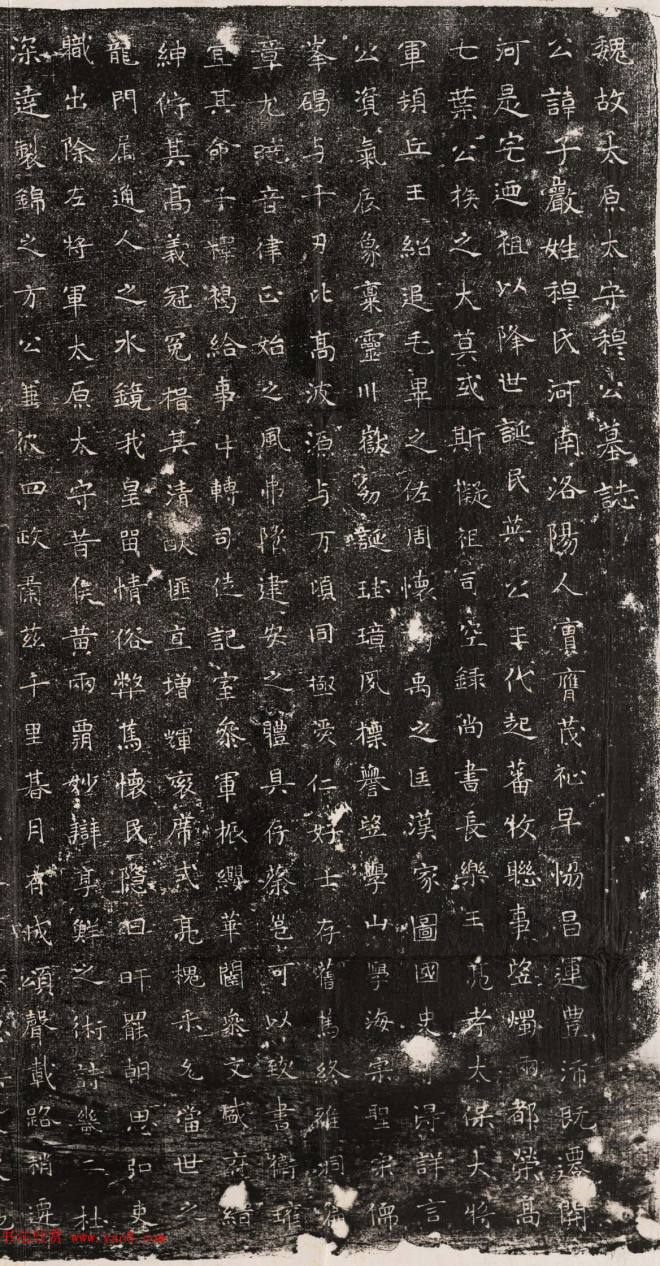 魏故太原太守穆公墓誌
公諱子巖姓穆氏河南洛陽人實膺茂祉早協昌運豊沛既遷開
河是宅迺祖以降世誕民英公王代起蕃牧聯事鉴燭兩都榮高
七葉公族之大莫或斯擬祖司空錄尚書長樂王亮考太保大將
軍頓丘王紹追毛畢之佐周懷禹之匡漢家圖國史得詳言
公資氣辰象稟靈川嶽幼誕珪璋風標譽望學山學海宗聖宗儒
峯碣与千刃比高波源与万頃同極愛仁好士存舊篤終雖洞篇
章尤曉音律正始之風弗隆建安之體具存蔡邕可以致書禰
宜其命子釋褐給事中轉司徒記室參軍振纓華閣參文盛府縉
紳佇其高義冠冕楷其清猷匪直增輝衮席式亮槐采允當世之
龍門属通人之水鏡我皇留情俗弊篤懷民隱日旰罷朝思弘吏
職出除左將軍太原太守昔侯黄兩霸妙辯亨鮮之術詩幾二杜
深達製錦之方公兼彼四政肅茲千里朞月有成頌聲載路稍
书法欣赏 www.yac8.com